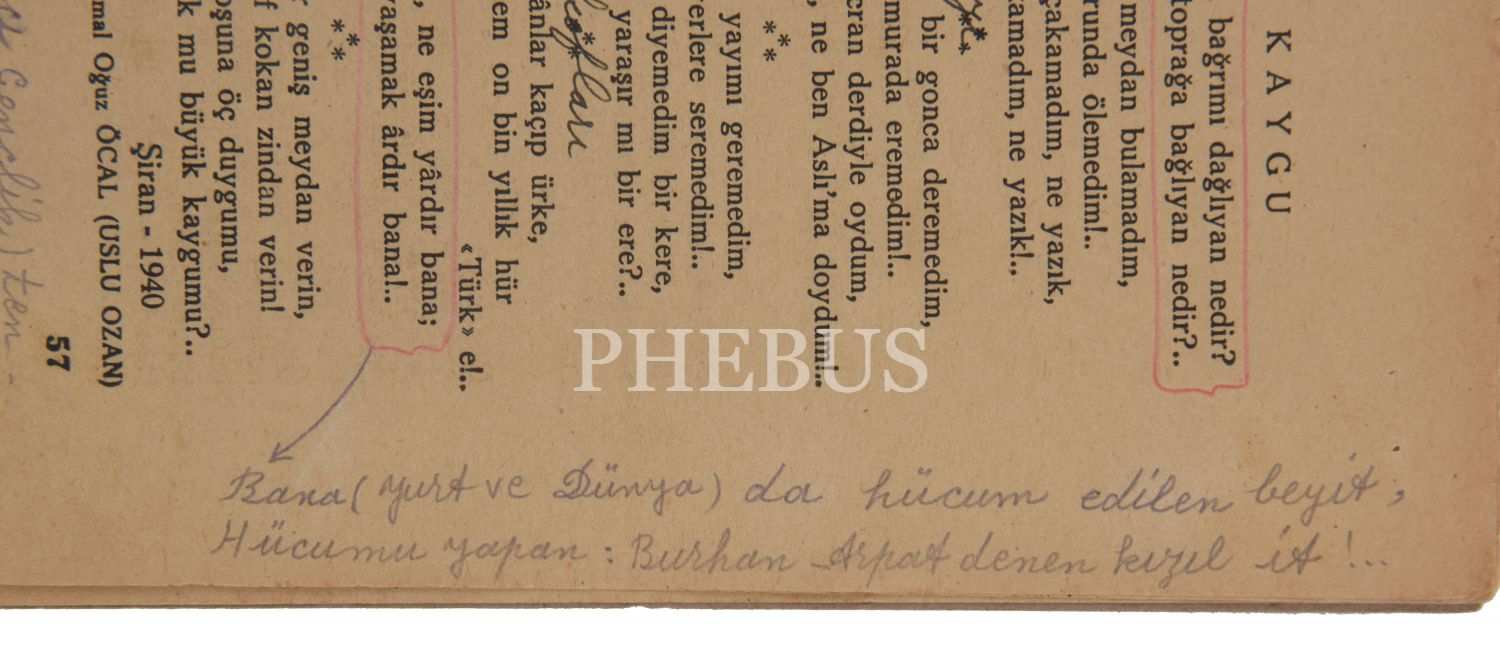 KAYGU
bağrımı dağlıyan nedir?
toprağa bağlıyan nedir?..
meydan bulamadım,
runda ölemedim!..
çakamadım, ne yazık,
kamadım, ne yazık!..
**
*
bir gonca deremedim,
murada eremedim!..
cran derdiyle oydum,
, ne ben Aslı'ma doydum!..
**
*
yayımı geremedim,
erlere seremedim!..
diyemedim bir kere,
yaraşır mı bir ere?..
**
*
ânlar kaçıp ürke,
em on bin yıllık hür
«Türk» e!..
, ne eşim yârdır bana;
yaşamak ârdır bana!..
**
*
geniş meydan verin,
f kokan zindan verin!
oşuna öç duygumu,
k mu büyük kaygumu?..
Şiran - 1940
mal Oğuz ÖCAL (USLU OZAN)
57
Gençlik) ten.
Bana (yurt ve Dünya) da hücum edilen beyit;
Hücumu yapan: Burhan Arpat denen kızıl it!...
PHEBUS